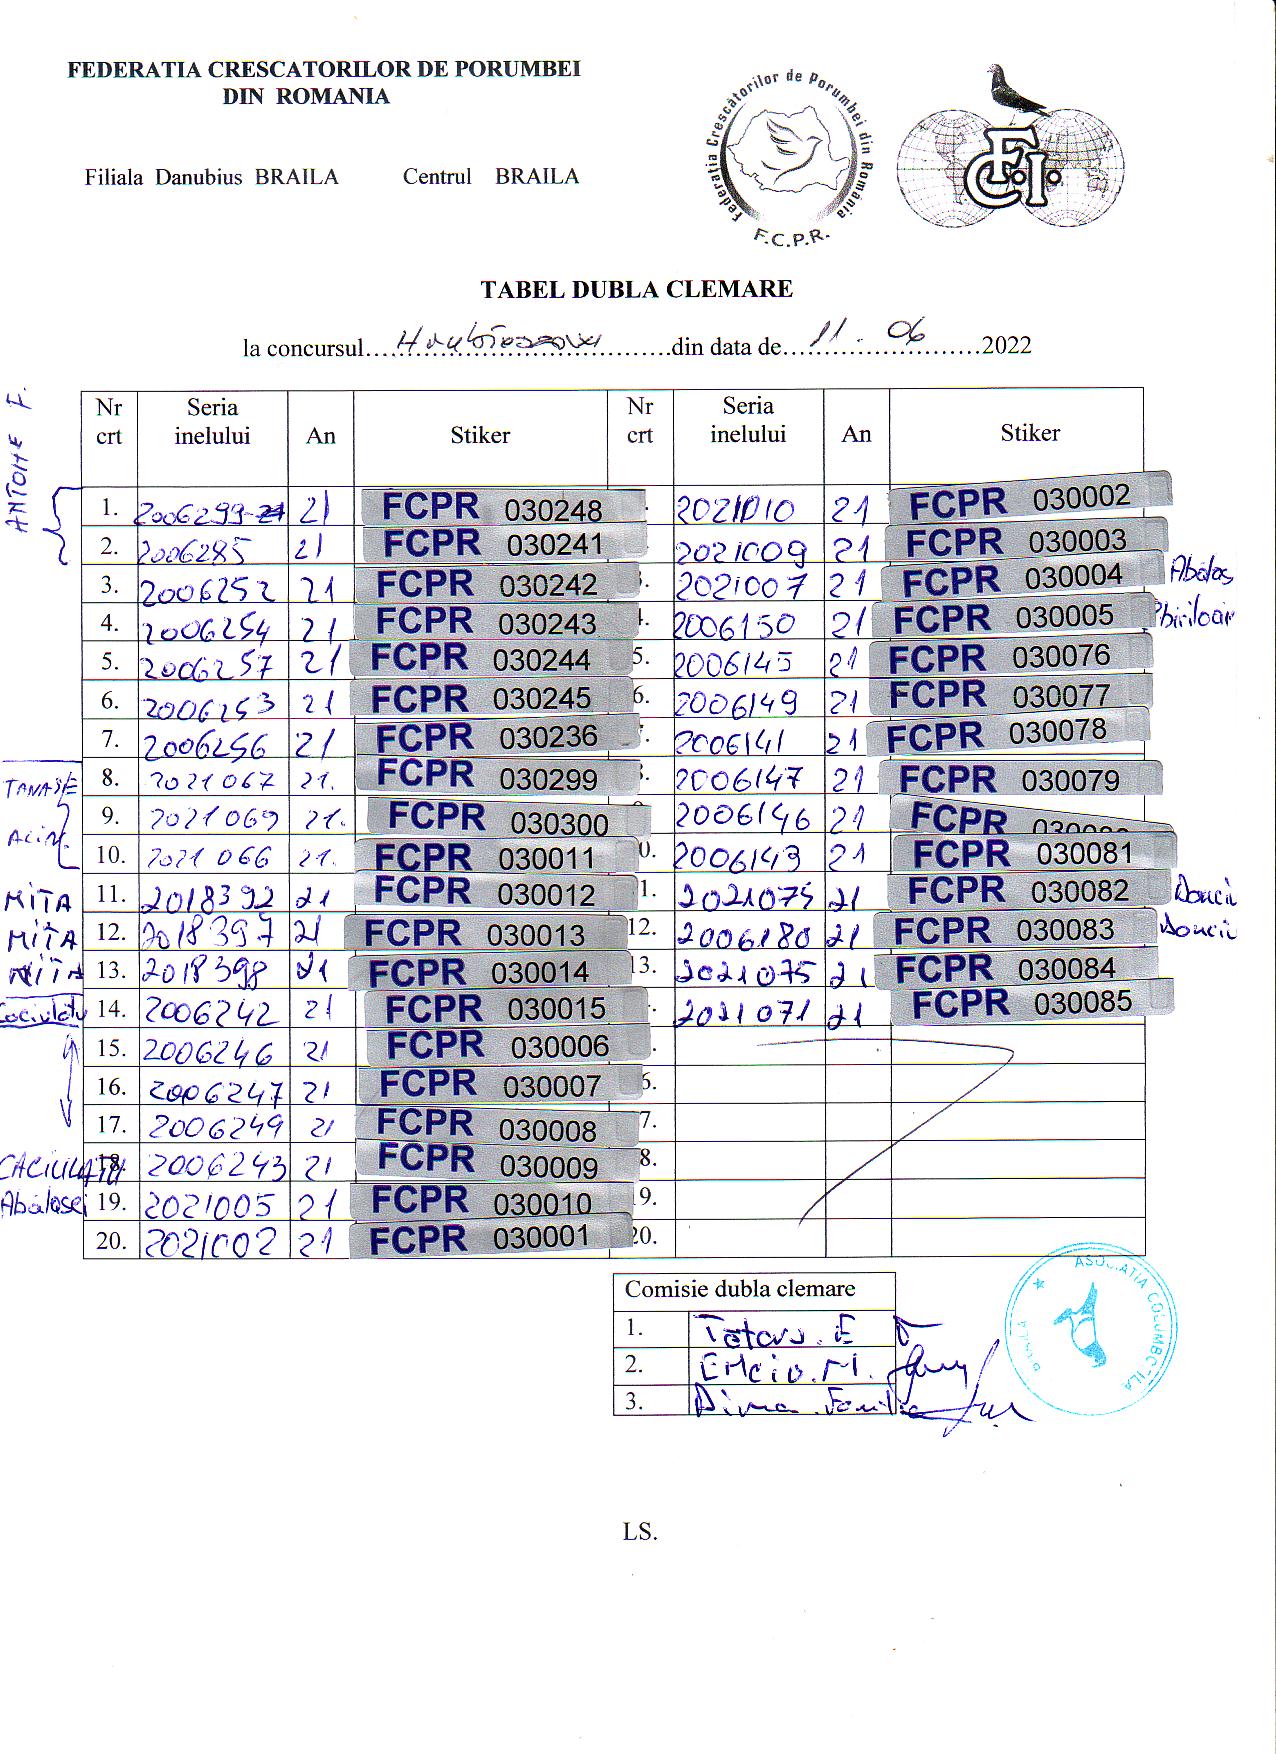 FEDERATIA CRESCATORILOR DE PORUMBEI
DIN ROMANIA
Filiala Danubius BRAILA Centrul BRAILA
Federatia Crescătorilor de Porumbei din România
F.C.P.R.
F.C.I.
TABEL DUBLA CLEMARE
la concursul……………………………….din data de……11. 06……2022
ANTOHE F.
Nr crt Seria inelului An Stiker Nr crt Seria inelului An Stiker
1. 2006299 21 FCPR 030248 2021010 21 FCPR 030002
2. 2006285 21 FCPR 030241 2021009 21 FCPR 030003
3. 2006252 21 FCPR 030242 2021007 21 FCPR 030004
4. 2006254 21 FCPR 030243 2006150 21 FCPR 030005
5. 2006257 21 FCPR 030244 5. 2006145 21 FCPR 030076
6. 2006253 21 FCPR 030245 6. 2006149 21 FCPR 030077
7. 2006256 21 FCPR 030236 2006141 21 FCPR 030078
TANASE 8. 2021067 21. FCPR 030299 2006147 21 FCPR 030079
9. 2021069 21. FCPR 030300 2006146 21 FCPR
ALIN. 10. 2021 066 21. FCPR 030011 0. 2006143 21 FCPR 030081
MITA 11. 2018392 21 FCPR 030012 1. 2021075 21 FCPR 030082
MITA 12. 2018397 21 FCPR 030013 12. 2006180 21 FCPR 030083
MITA 13. 2018398 21 FCPR 030014 13. 2021075 21 FCPR 030084
14. 2006242 21 FCPR 030015 2021071 21 FCPR 030085
15. 2006246 21 FCPR 030006
16. 2006247 21 FCPR 030007 6.
17. 2006249 21 FCPR 030008 7.
CACIULATU 18. 2006243 21 FCPR 030009 8.
Abalasei 19. 2021005 21 FCPR 030010 9.
20. 2021002 21 FCPR 030001 20.
Comisie dubla clemare
1.
2.
3.
ASOCIATIA COLUMBOFILA
BRAILA
LS.